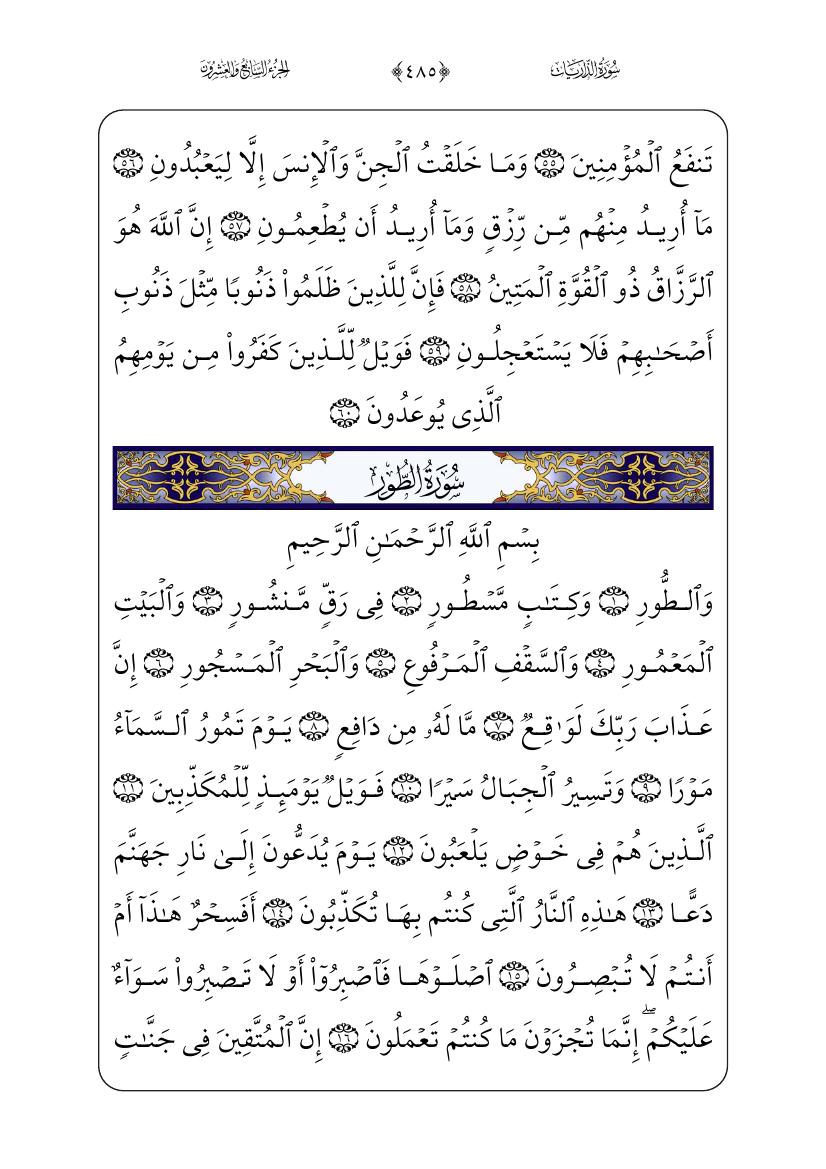 سُورَةُ الذَّارِيَاتِ ﴿٤٨٥﴾ الجُزْءُ السَّابِعُ وَالعِشْرُونَ
تَنفَعُ ٱلۡمُؤۡمِنِينَ ۝٥٥ وَمَا خَلَقۡتُ ٱلۡجِنَّ وَٱلۡإِنسَ إِلَّا لِيَعۡبُدُونِ ۝٥٦
مَآ أُرِيدُ مِنۡهُم مِّن رِّزۡقٖ وَمَآ أُرِيدُ أَن يُطۡعِمُونِ ۝٥٧ إِنَّ ٱللَّهَ هُوَ
ٱلرَّزَّاقُ ذُو ٱلۡقُوَّةِ ٱلۡمَتِينُ ۝٥٨ فَإِنَّ لِلَّذِينَ ظَلَمُواْ ذَنُوبٗا مِّثۡلَ ذَنُوبِ
أَصۡحَٰبِهِمۡ فَلَا يَسۡتَعۡجِلُونِ ۝٥٩ فَوَيۡلٞ لِّلَّذِينَ كَفَرُواْ مِن يَوۡمِهِمُ
ٱلَّذِي يُوعَدُونَ ۝٦٠
سُورَةُ الطُّورِ
بِسۡمِ ٱللَّهِ ٱلرَّحۡمَٰنِ ٱلرَّحِيمِ
وَٱلطُّورِ ۝١ وَكِتَٰبٖ مَّسۡطُورٖ ۝٢ فِي رَقّٖ مَّنشُورٖ ۝٣ وَٱلۡبَيۡتِ
ٱلۡمَعۡمُورِ ۝٤ وَٱلسَّقۡفِ ٱلۡمَرۡفُوعِ ۝٥ وَٱلۡبَحۡرِ ٱلۡمَسۡجُورِ ۝٦ إِنَّ
عَذَابَ رَبِّكَ لَوَٰقِعٞ ۝٧ مَّا لَهُۥ مِن دَافِعٖ ۝٨ يَوۡمَ تَمُورُ ٱلسَّمَآءُ
مَوۡرٗا ۝٩ وَتَسِيرُ ٱلۡجِبَالُ سَيۡرٗا ۝١٠ فَوَيۡلٞ يَوۡمَئِذٖ لِّلۡمُكَذِّبِينَ ۝١١
ٱلَّذِينَ هُمۡ فِي خَوۡضٖ يَلۡعَبُونَ ۝١٢ يَوۡمَ يُدَعُّونَ إِلَىٰ نَارِ جَهَنَّمَ
دَعًّا ۝١٣ هَٰذِهِ ٱلنَّارُ ٱلَّتِي كُنتُم بِهَا تُكَذِّبُونَ ۝١٤ أَفَسِحۡرٌ هَٰذَآ أَمۡ
أَنتُمۡ لَا تُبۡصِرُونَ ۝١٥ ٱصۡلَوۡهَا فَٱصۡبِرُوٓاْ أَوۡ لَا تَصۡبِرُواْ سَوَآءٌ
عَلَيۡكُمۡۖ إِنَّمَا تُجۡزَوۡنَ مَا كُنتُمۡ تَعۡمَلُونَ ۝١٦ إِنَّ ٱلۡمُتَّقِينَ فِي جَنَّٰتٖ